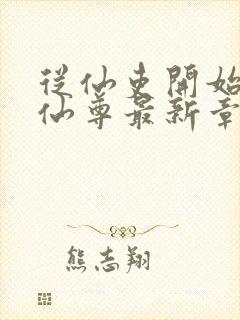 從仙吏開始
仙尊最新章
熊志翔